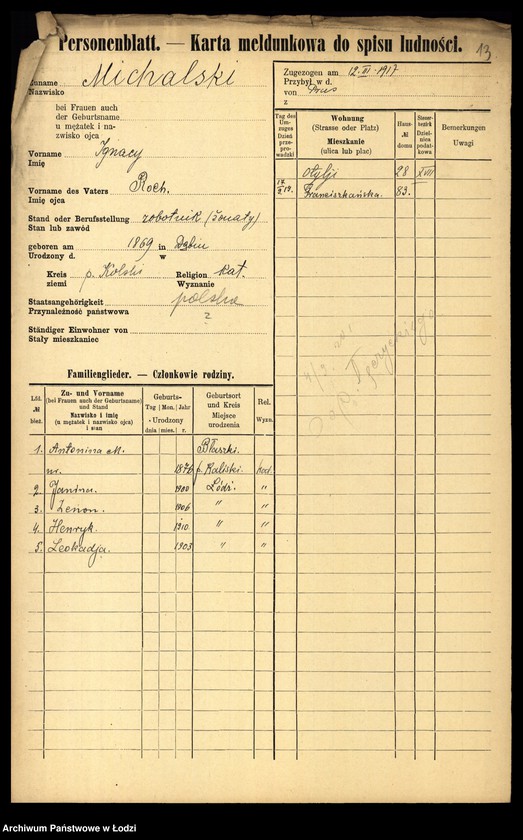 Personenblatt. — Karta meldunkowa do spisu ludności.
13
Zuname Michalski
Nazwisko
bei Frauen auch
der Geburtsname
u mężatek i na-
zwisko ojca
Vorname Ignacy
Imię
Vorname des Vaters Roch.
Imię ojca
Stand oder Berufsstellung robotnik (żonaty)
Stan lub zawód
geboren am 1869 in Dąbiu
Urodzony d. w
Kreis p. Kolski Religion kat.
ziemi Wyznanie
Staatsangehörigkeit polska
Przynależność państwowa ?
Ständiger Einwohner von
Stały mieszkaniec
Familienglieder. — Członkowie rodziny.
Lfd. № bież.
Zu- und Vorname
(bei Frauen auch der Geburtsname)
und Stand
Nazwisko i imię
(u mężatek i nazwisko ojca)
i stan
Geburts-
Tag Mon. Jahr
Urodzony
dnia mies. r.
Geburtsort
und Kreis
Miejsce
urodzenia
Rel.
Wyzn.
1. Antonina M. Błaszki.
1876 p. Kaliski kat.
2. Janina. 1900 Łódź. "
3. Zenon. 1906 " "
4. Henryk. 1910 " "
5. Leokadja. 1903 " "
Zugezogen am 12.VI.1917
Przybył w d.
von
z
Tag des
Um-
zuges
Dzień
prze-
prowadzki
Wohnung
(Strasse oder Platz)
Mieszkanie
(ulica lub plac)
Haus-
№
domu
Steuer-
bezirk
Dziel-
nica
podat-
kowa
Bemerkungen
Uwagi
Otylji 28 XVIII
Franciszkańska. 83.
Archiwum Państwowe w Łodzi